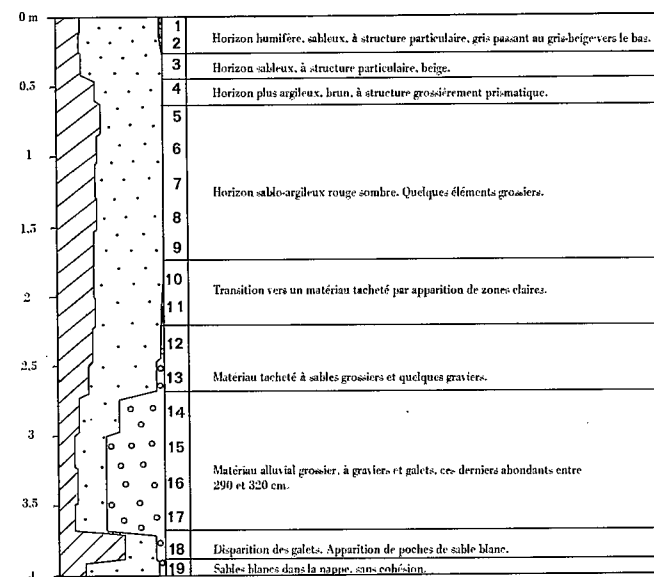 0 m
1
2
Horizon humifère, sableux, à structure particulaire, gris passant au gris-beige vers le bas.
3
Horizon sableux, à structure particulaire, beige.
0.5
4
Horizon plus argileux, brun, à structure grossièrement prismatique.
5
1
6
7
Horizon sablo-argileux rouge sombre. Quelques éléments grossiers.
8
1.5
9
10
Transition vers un matériau tacheté par apparition de zones claires.
2
11
12
2.5
13
Matériau tacheté à sables grossiers et quelques graviers.
14
3
15
Matériau alluvial grossier, à graviers et galets, ces derniers abondants entre
16
290 et 320 cm.
3.5
17
18
Disparition des galets. Apparition de poches de sable blanc.
19
Sables blancs dans la nappe, sans cohésion.